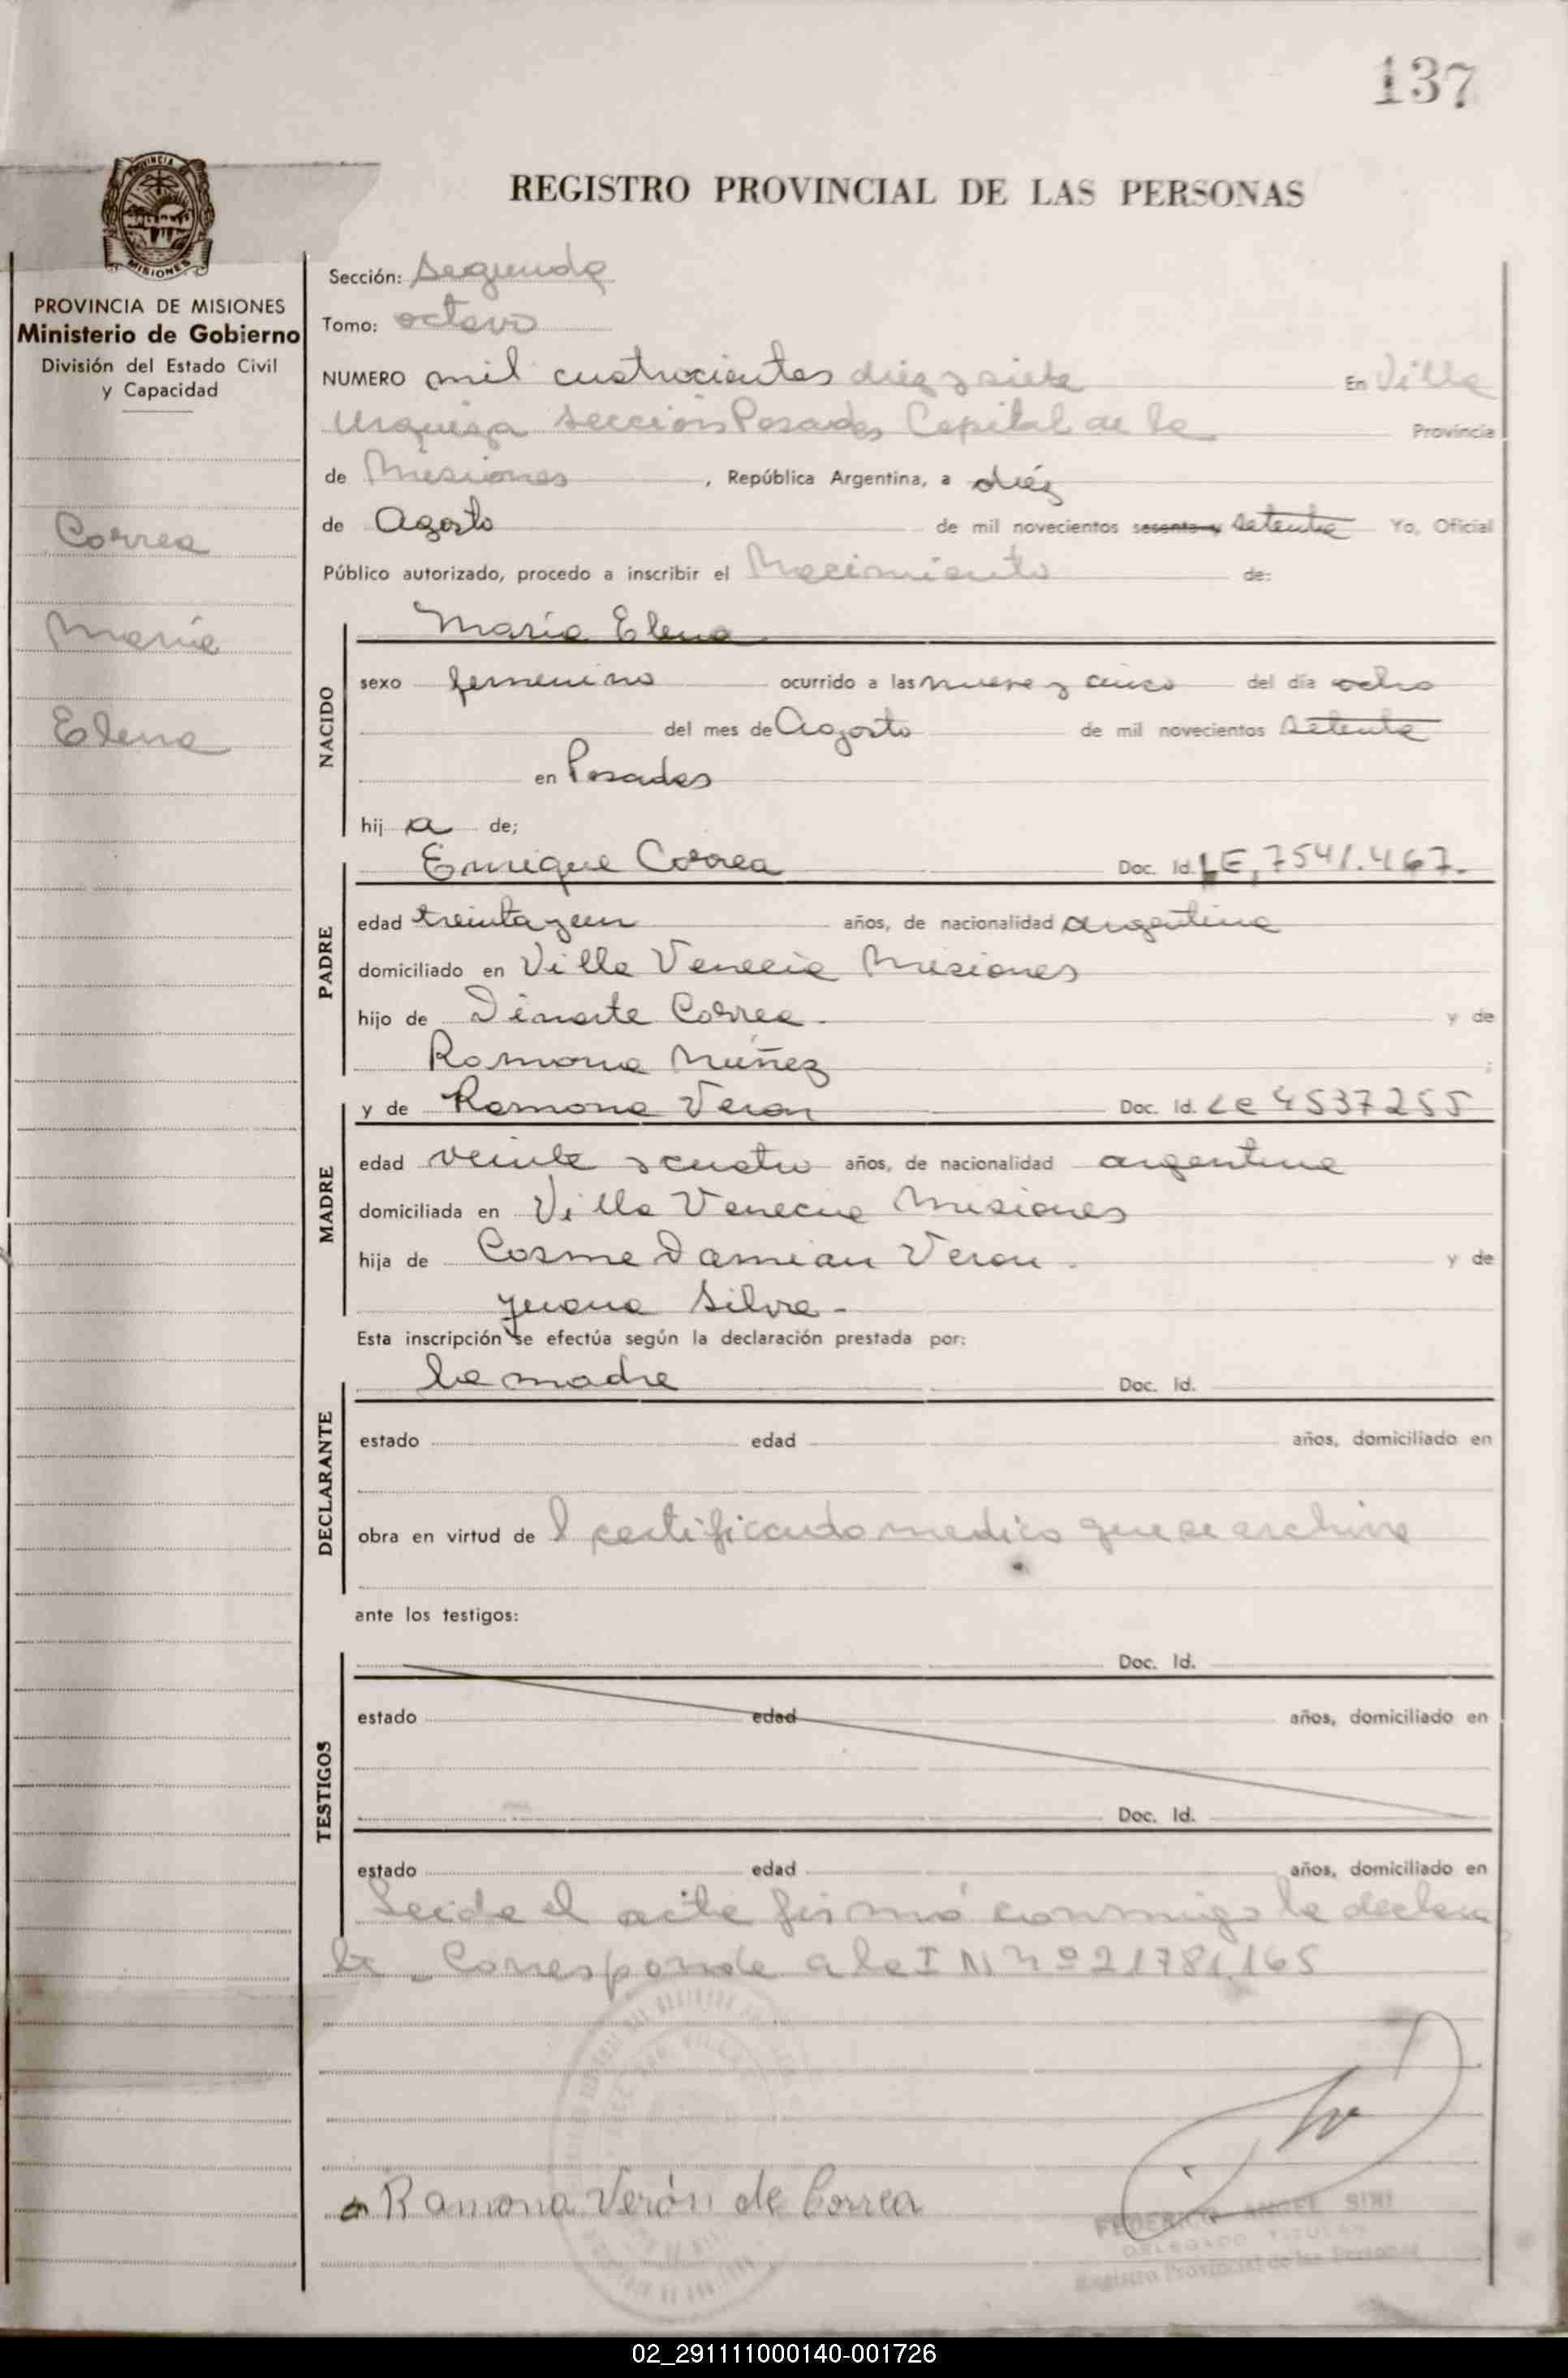 137
PROVINCIA
MISIONES
REGISTRO PROVINCIAL DE LAS PERSONAS
PROVINCIA DE MISIONES
Ministerio de Gobierno
División del Estado Civil
y Capacidad
Correa
María
Elena
Sección: Segunda
Tomo: octavo
NUMERO mil cuatrocientos diez y siete En Villa
Urquiza sección Posadas Capital de la Provincia
de Misiones, República Argentina, a diéz
de Agosto de mil novecientos sesenta y setenta Yo, Oficial
Público autorizado, procedo a inscribir el Nacimiento de:
NACIDO
María Elena
sexo femenino ocurrido a las nueve y cinco del día ocho
del mes de Agosto de mil novecientos setenta
en Posadas
hij a de;
PADRE
Enrique Correa Doc. Id. LE, 7541.467.
edad treinta y un años, de nacionalidad argentina
domiciliado en Villa Venecia Misiones
hijo de Dinarte Correa. y de
Ramona Núñez ;
MADRE
y de Ramona Veron Doc. Id. Lc 4537255
edad veinte y cuatro años, de nacionalidad argentina
domiciliada en Villa Venecia Misiones
hija de Cosme Damian Veron. y de
Juana Silva -
Esta inscripción se efectúa según la declaración prestada por:
DECLARANTE
la madre Doc. Id.
estado edad años, domiciliado en
obra en virtud de l certificado medico que se archiva
ante los testigos:
TESTIGOS
Doc. Id.
estado edad años, domiciliado en
Doc. Id.
estado edad años, domiciliado en
Leida el acta firmó conmigo la declaran
te - Corresponde a la I N nº 21781165
Ramona Verón de Correa
FEDERICO ANGEL SIRI
DELEGADO TITULAR
Registro Provincial de las Personas
02_291111000140-001726